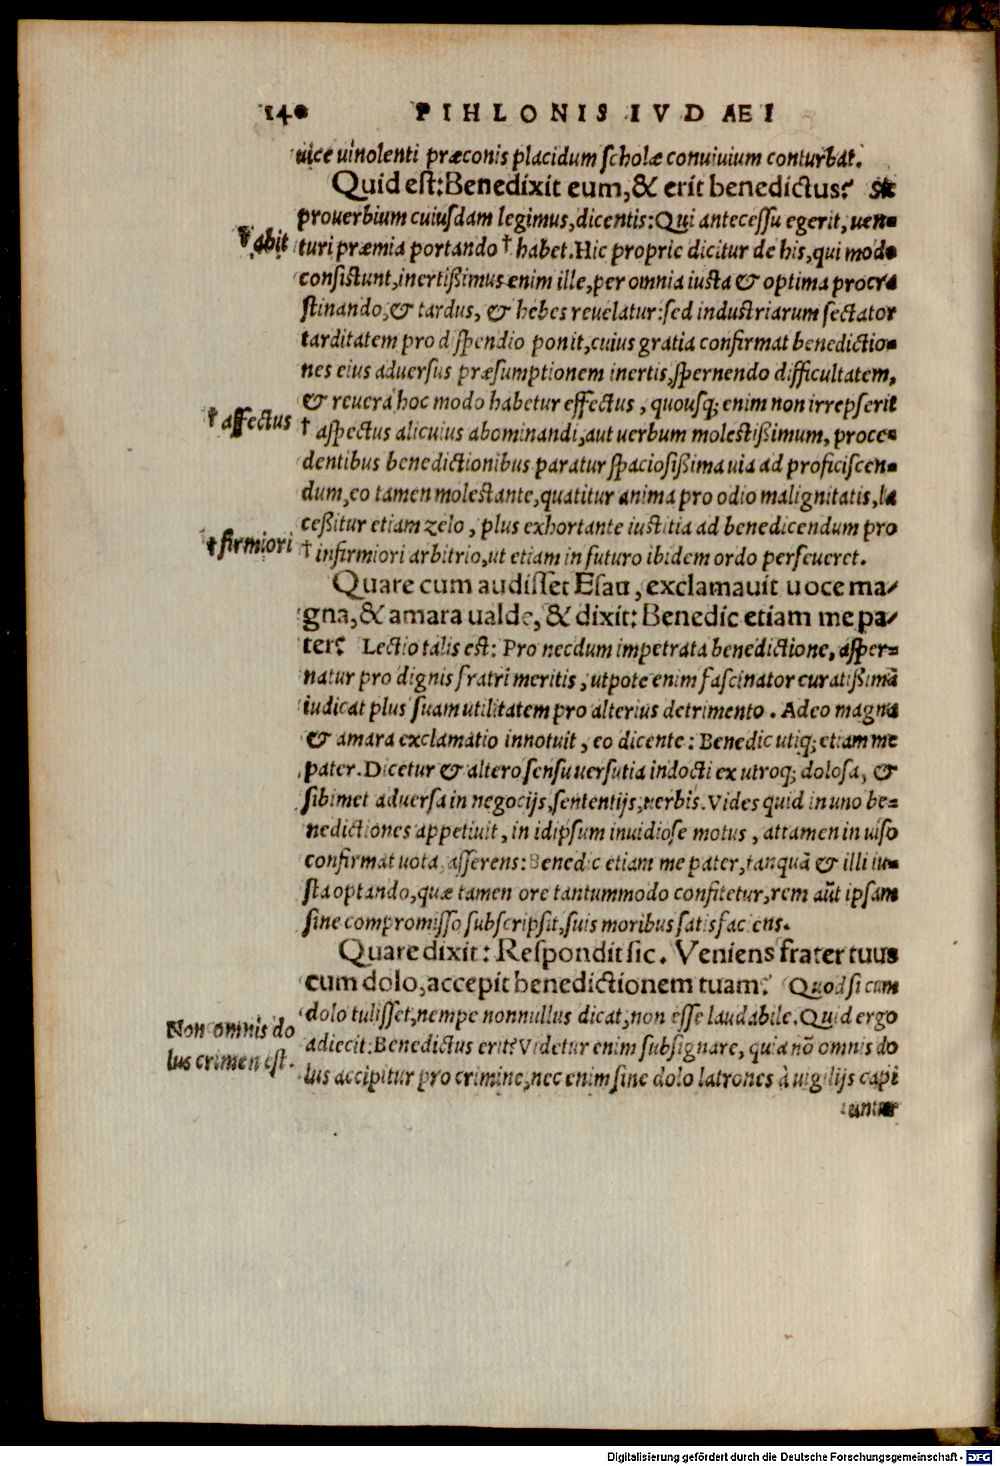 140 PIHLONIS IVDAEI
uice uinolenti præconis placidum scholæ conuiuium conturbat.
Quid est: Benedixit eum, & erit benedictus? Sic
prouerbium cuiusdam legimus, dicentis: Qui antecessu egerit, uen-
† abit
turi præmia portando † habet. Hic proprie dicitur de his, qui modo
consistunt, inertißimus enim ille, per omnia iusta & optima procra
stinando, & tardus, & hebes reuelatur: sed industriarum sectator
tarditatem pro dispendio ponit, cuius gratia confirmat benedictio-
nes eius aduersus præsumptionem inertis, spernendo difficultatem,
& reuera hoc modo habetur effectus, quousq; enim non irrepserit
† affectus
† aspectus alicuius abominandi, aut uerbum molestißimum, proce-
dentibus benedictionibus paratur spaciosißima uia ad proficiscen-
dum, eo tamen molestante, quatitur anima pro odio malignitatis, la
ceßitur etiam zelo, plus exhortante iustitia ad benedicendum pro
† firmiori
† infirmiori arbitrio, ut etiam in futuro ibidem ordo perseueret.
Quare cum audisset Esau, exclamauit uoce ma-
gna, & amara ualde, & dixit: Benedic etiam me pa-
ter? Lectio talis est: Pro necdum impetrata benedictione, asper-
natur pro dignis fratri meritis, utpote enim fascinator curatißimã
iudicat plus suam utilitatem pro alterius detrimento. Adeo magna
& amara exclamatio innotuit, eo dicente: Benedic utiq; etiam me
pater. Dicetur & altero sensu uersutia indocti ex utroq; dolosa, &
sibimet aduersa in negocijs, sententijs, uerbis. Vides quid in uno be-
nedictiones appetiuit, in idipsum inuidiose motus, attamen in uiso
confirmat uota, asserens: Benedic etiam me pater, tanquã & illi iu-
sta optando, quæ tamen ore tantummodo confitetur, rem aũt ipsam
sine compromisso subscripsit, suis moribus satisfaciens.
Quare dixit: Respondit sic. Veniens frater tuus
cum dolo, accepit benedictionem tuam? Quod si cum
dolo tulisset, nempe nonnullus dicat, non esse laudabile. Quid ergo
Non omnis do
lus crimen est.
adiecit: Benedictus erit? Videtur enim subsignare, quia nõ omnis do
lus accipitur pro crimine, nec enim sine dolo latrones à uigilijs capi
untur
Digitalisierung gefördert durch die Deutsche Forschungsgemeinschaft - DFG